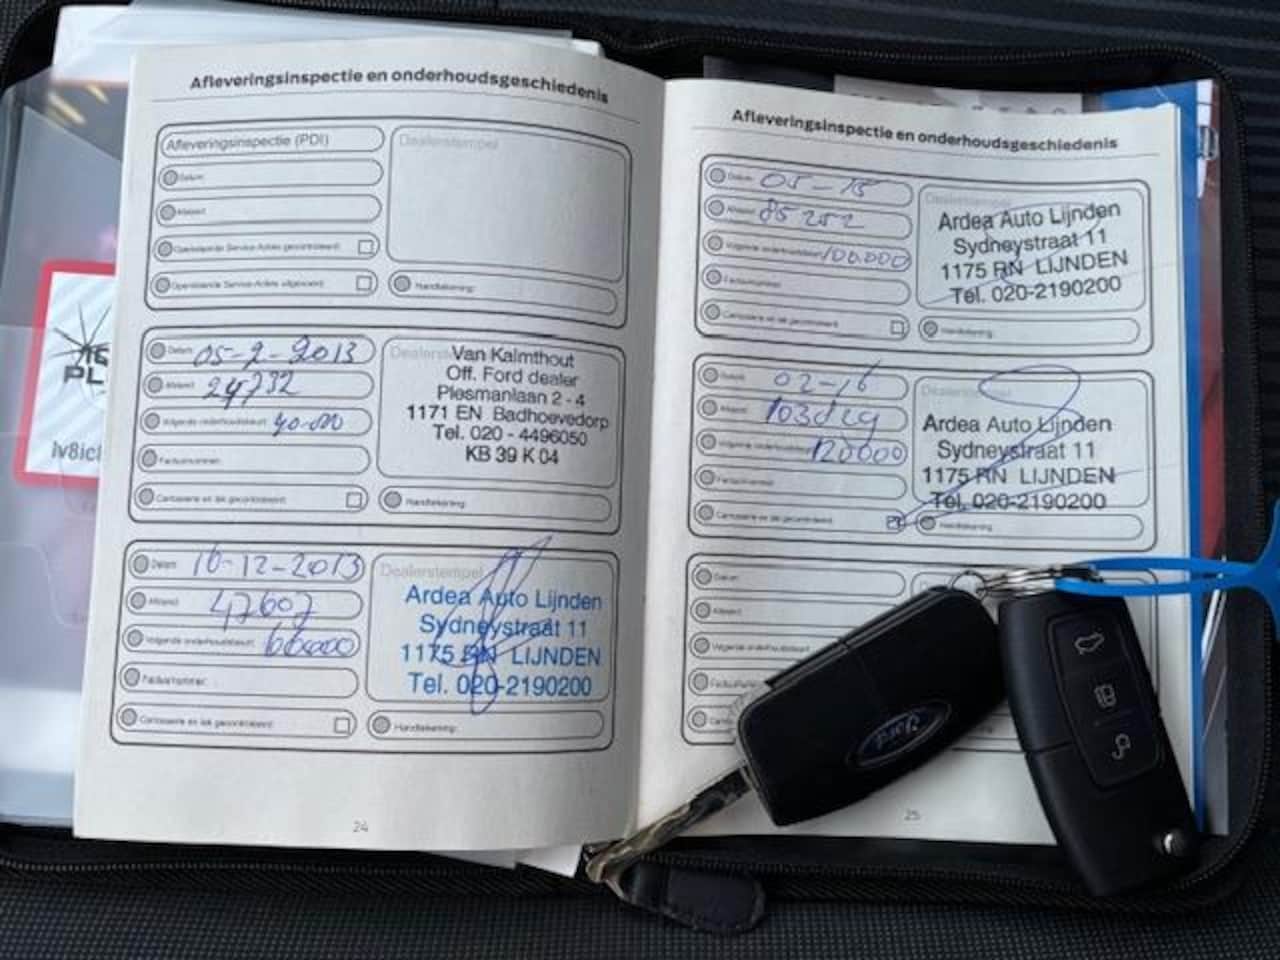 Afleveringsinspectie en onderhoudsgeschiedenis
Afleveringsinspectie (PDI)
Dealerstempel
Datum:
Afstand:
Openstaande Service-Acties gecontroleerd:
Openstaande Service-Acties uitgevoerd:
Handtekening:
Datum: 05-2-2013
Afstand: 24732
Volgende onderhoudsbeurt: 40.000
Factuurnummer:
Carrosserie en lak gecontroleerd:
Van Kalmthout
Off. Ford dealer
Plesmanlaan 2 - 4
1171 EN Badhoevedorp
Tel. 020 - 4496050
KB 39 K 04
Handtekening:
Datum: 16-12-2013
Afstand: 47607
Volgende onderhoudsbeurt: 60000
Factuurnummer:
Carrosserie en lak gecontroleerd:
Dealerstempel
Ardea Auto Lijnden
Sydneystraat 11
1175 RN LIJNDEN
Tel. 020-2190200
Handtekening:
24
Afleveringsinspectie en onderhoudsgeschiedenis
Datum: 05-15
Afstand: 85252
Volgende onderhoudsbeurt: 100.000
Factuurnummer:
Carrosserie en lak gecontroleerd:
Dealerstempel
Ardea Auto Lijnden
Sydneystraat 11
1175 RN LIJNDEN
Tel. 020-2190200
Handtekening:
Datum: 02-16
Afstand:
Volgende onderhoudsbeurt: 120000
Factuurnummer:
Carrosserie en lak gecontroleerd:
Dealerstempel
Ardea Auto Lijnden
Sydneystraat 11
1175 RN LIJNDEN
Tel. 020-2190200
Handtekening:
Datum:
Afstand:
Volgende onderhoudsbeurt:
25
Ford